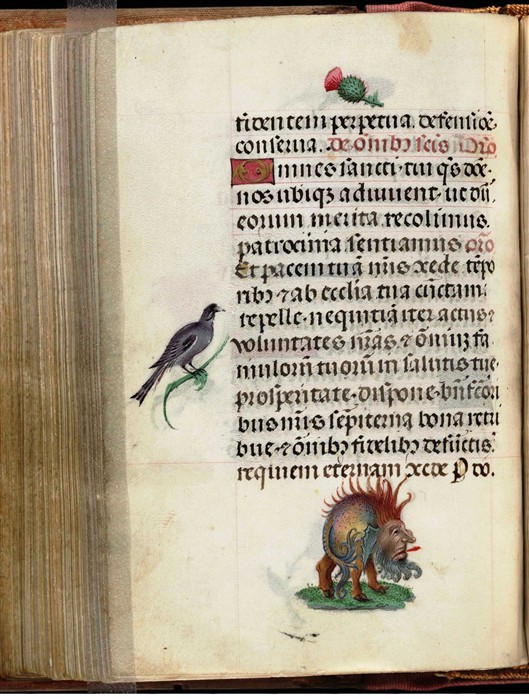 fidentem perpetua. defensiōe
conserua. de om̄ib3 scis Oro
Omnes sancti tui q̄s dn̄e
nos ubiq3 adiuuent. ut dū
eorum merita recolimus.
patrocinia sentiamus oro
Et pacem tuā n̄ris ꝯcede tēpo
rib3 ⁊ ab ecclīa tua cūctam
repelle. nequitiā iter actus ⁊
voluntates nr̄as. ⁊ ōniuꝫ fa
mulorū tuorū in salutis tue
prosperitate. dispone. bn̄fcōri
bus nr̄is sēpiterna bona retri
bue. ⁊ ōnib3 fidelib3 defūctis.
requiem eternam ꝯcde P do.